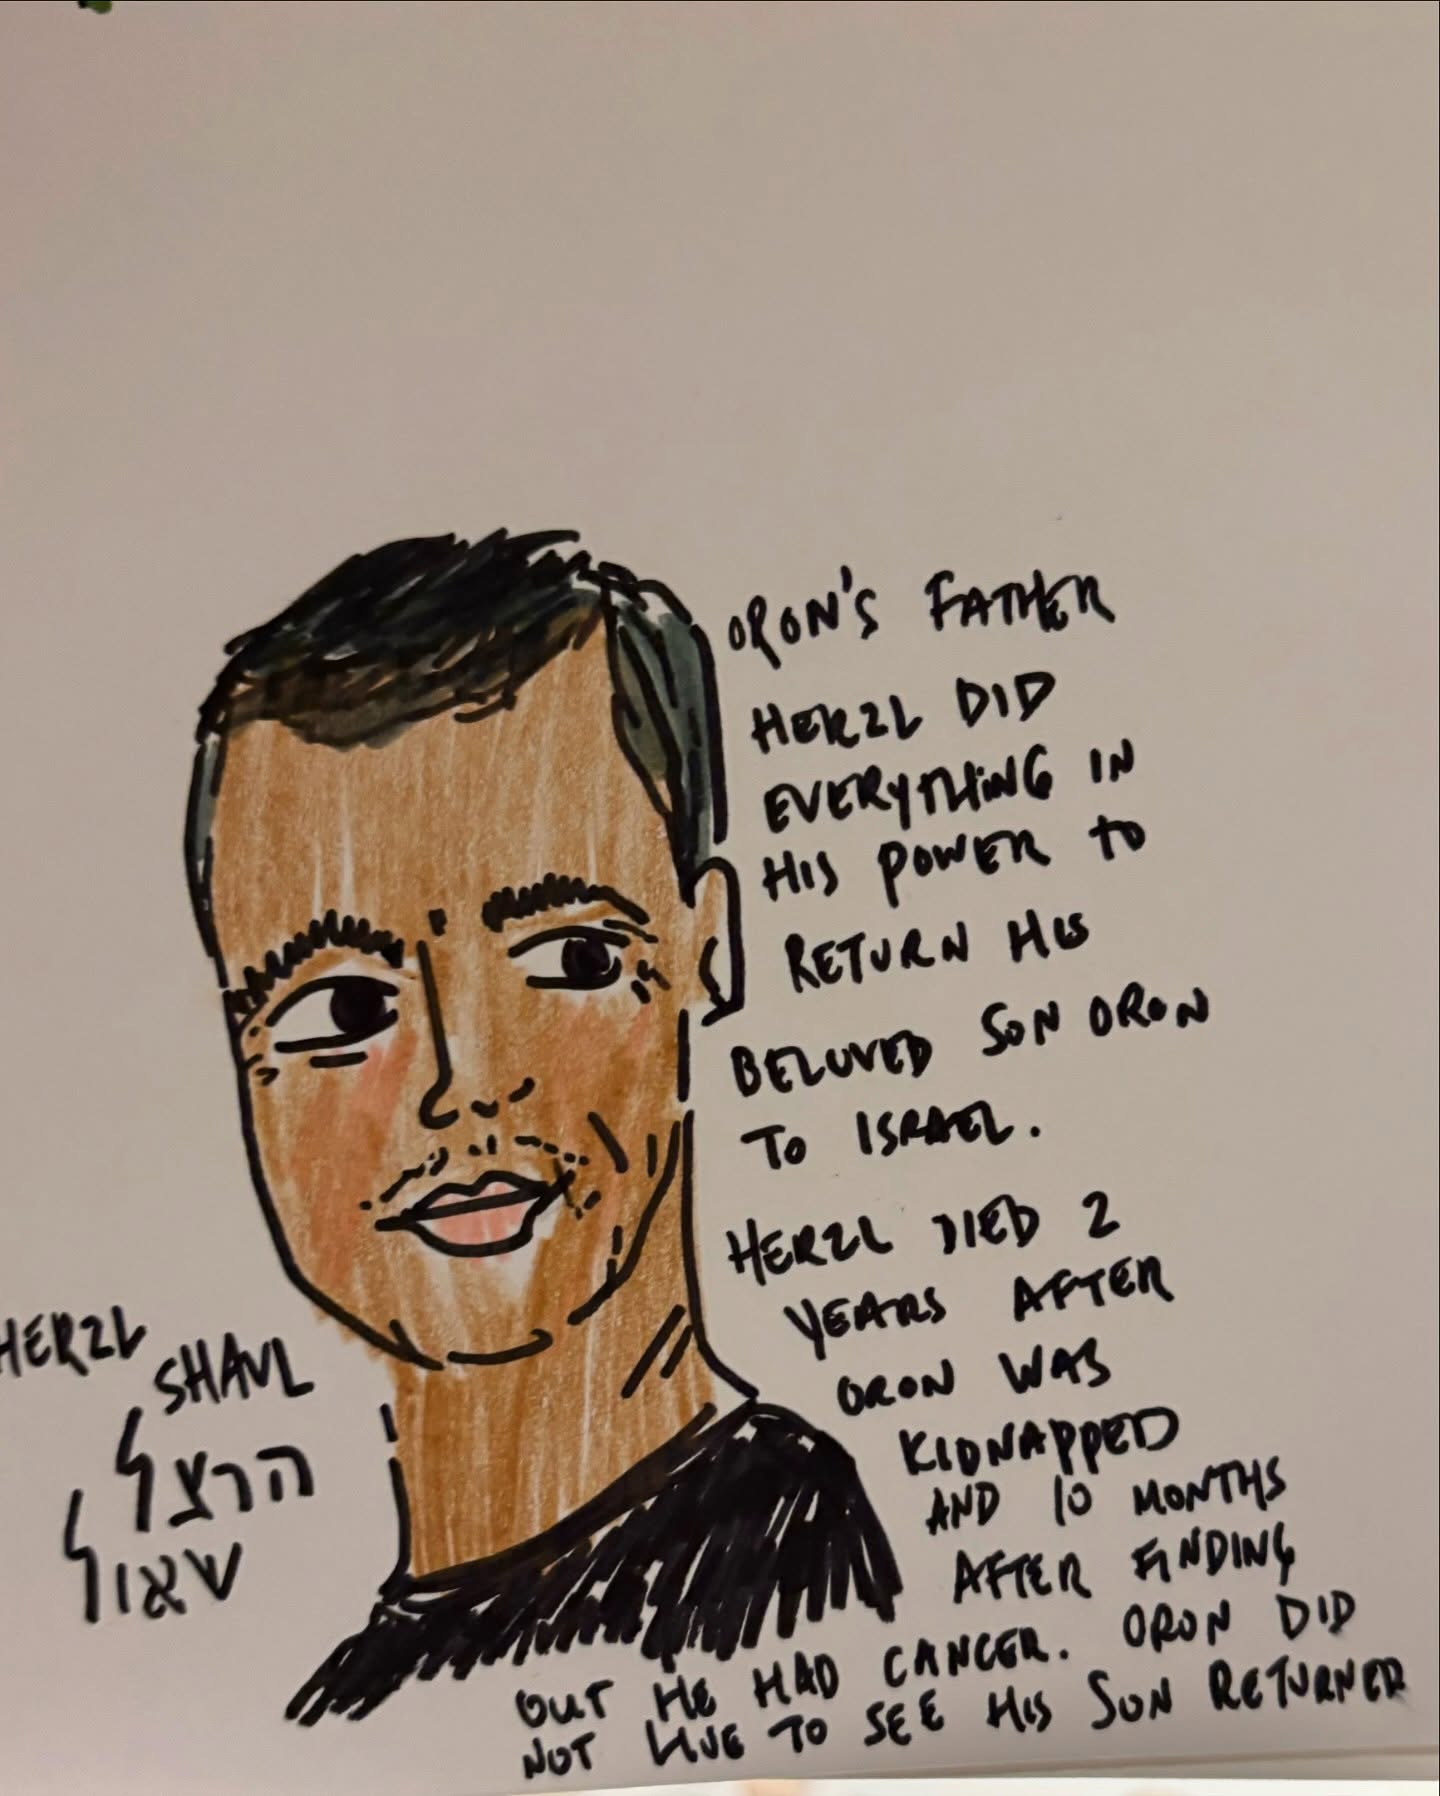 ORON'S FATHER
HERZL DID
EVERYTHING IN
HIS POWER TO
RETURN HIS
BELOVED SON ORON
TO ISRAEL.
HERZL DIED 2
YEARS AFTER
ORON WAS
KIDNAPPED
AND 10 MONTHS
AFTER FINDING
OUT HE HAD CANCER. ORON DID
NOT LIVE TO SEE HIS SON RETURNED
HERZL
SHAUL
הרצל
שאול